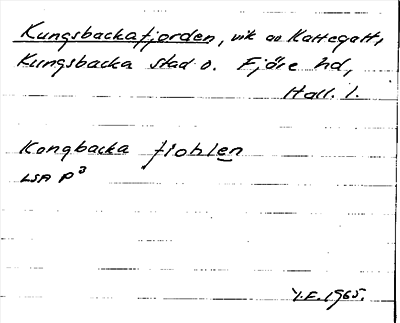 Kungsbackafjorden, vik av Kattegatt,
Kungsbacka stad o. Fjäre hd,
Hall. l.
Kongbacka fiohlen
LSA P3
Y.F. 1965.